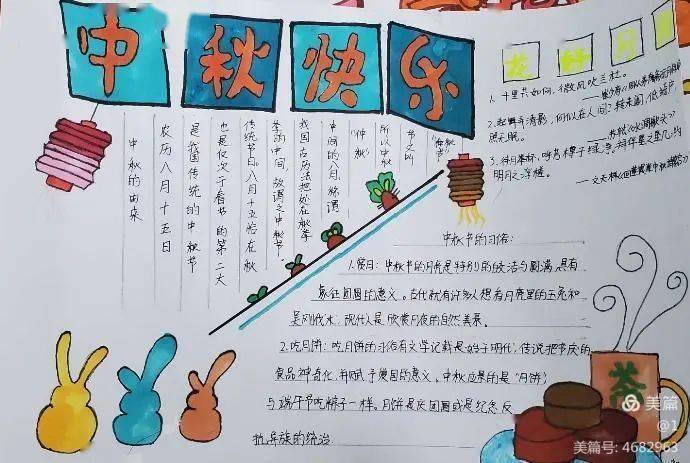 中秋快乐
花好月
1、十里共如何,微风吹兰杜。
2、起舞弄清影,何似在人间?转朱阁,低绮户,
照无眠。
中秋的由来
农历八月十五日
是我国传统的中秋节
也是仅次于春节的第二大
传统节日。八月十五恰在秋
季的中间,故谓之中秋节.
我国古历法把处在秋季
中间的八月,称谓
“仲秋”
所以中秋
节又叫
“仲秋节”
中秋节的习俗:
1.赏月:中秋节的月亮是特别的皎洁与圆满,具有
象征团圆的意义。古代就有许多人想看月亮里的玉兔和
吴刚伐木,现代人是欣赏月夜的自然美景。
2.吃月饼:吃月饼的习俗有文学记载是始于明代,传说把节庆的
食品神奇化,并赋予爱国的意义。中秋应景的是“月饼)
与端午节吃粽子一样。月饼是庆团圆或是纪念反
抗异族的统治
茶
美篇
@1
美篇号: 4682963